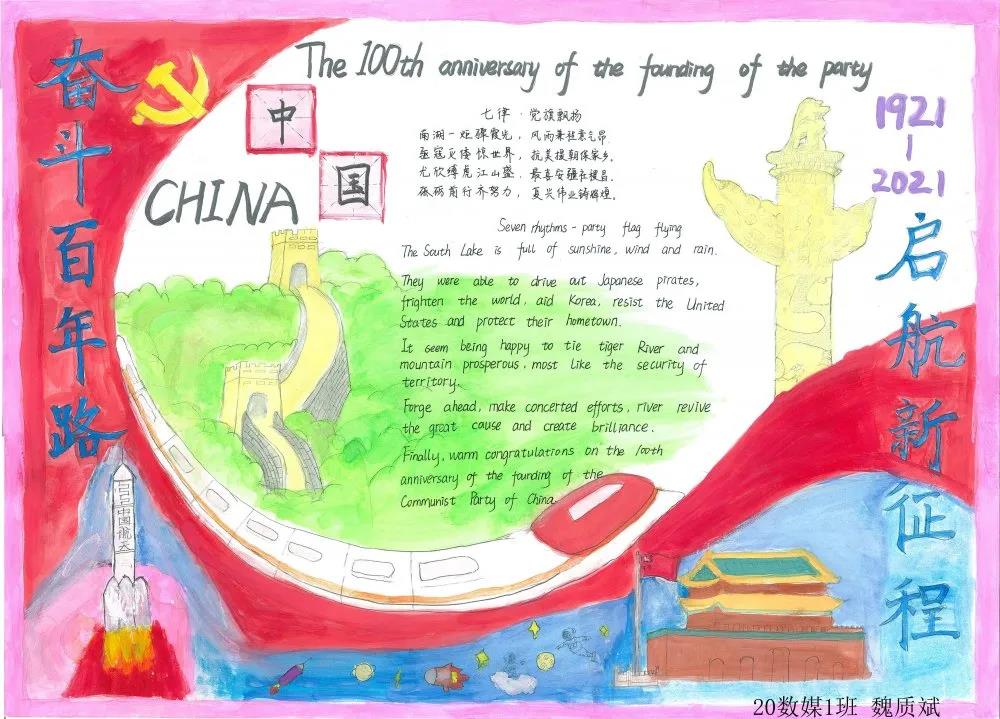 The 100th anniversary of the founding of the party
奋斗百年路
中
国
CHINA
1921
|
2021
启航新征程
七律·党旗飘扬
南湖一炬骤霞光,风雨兼程意气昂
寇灭倭惊世界,抗美援朝保家乡。
尤欣缚虎江山盛,最喜安疆社稷昌。
砥砺前行齐努力,复兴伟业铸辉煌。
Seven rhythms - party flag flying
The South Lake is full of sunshine, wind and rain.
They were able to drive out Japanese pirates,
frighten the world, aid Korea, resist the United
States and protect their hometown.
It seem being happy to tie tiger River and
mountain prosperous, most like the security of
territory.
Forge ahead, make concerted efforts, river revive
the great cause and create brilliance.
Finally, warm congratulations on the 100th
anniversary of the founding of the
Communist Party of China
中国航天
20数媒1班 魏质斌